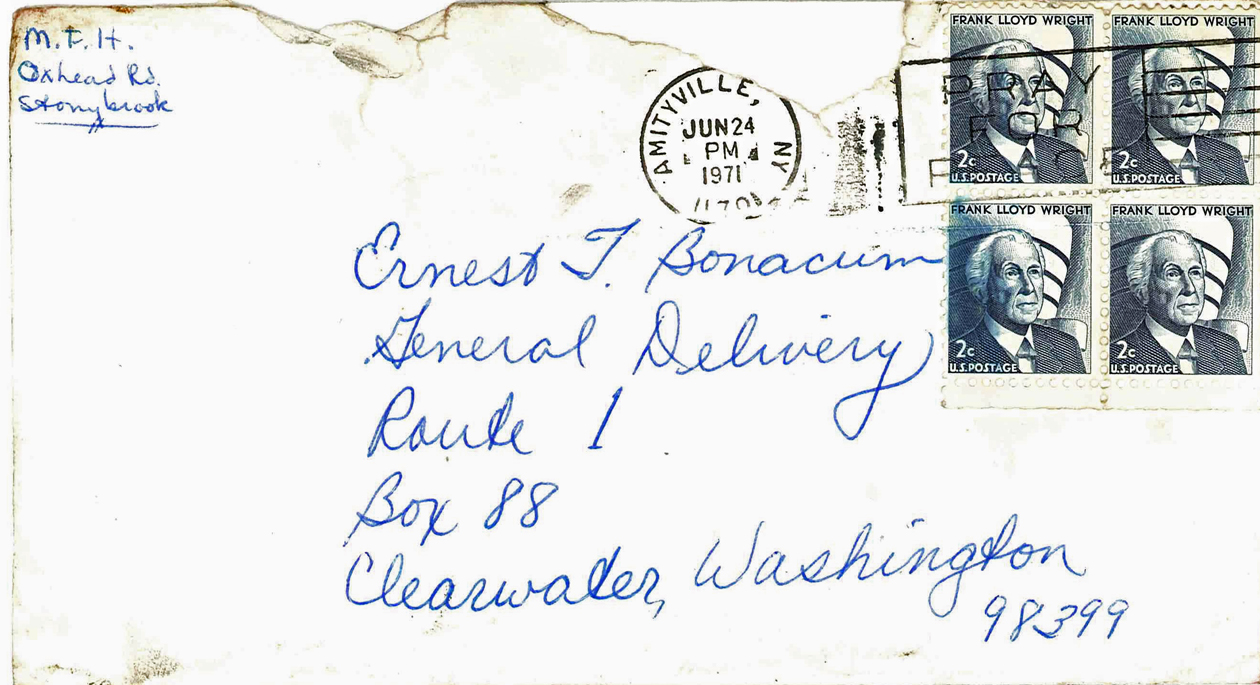 M.F.H.
Oxhead Rd.
Stonybrook
AMITYVILLE, NY
JUN 24
PM
1971
PRAY
FOR
FRANK LLOYD WRIGHT
2c
U.S.POSTAGE
FRANK LLOYD WRIGHT
2c
U.S.POSTAGE
FRANK LLOYD WRIGHT
2c
U.S.POSTAGE
FRANK LLOYD WRIGHT
2c
U.S.POSTAGE
Ernest T. Bonacum
General Delivery
Route 1
Box 88
Clearwater, Washington
98399